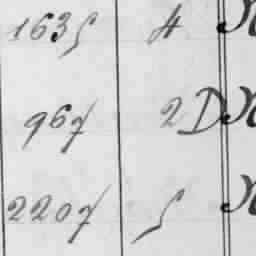 1635 4
967 2D
2207 5